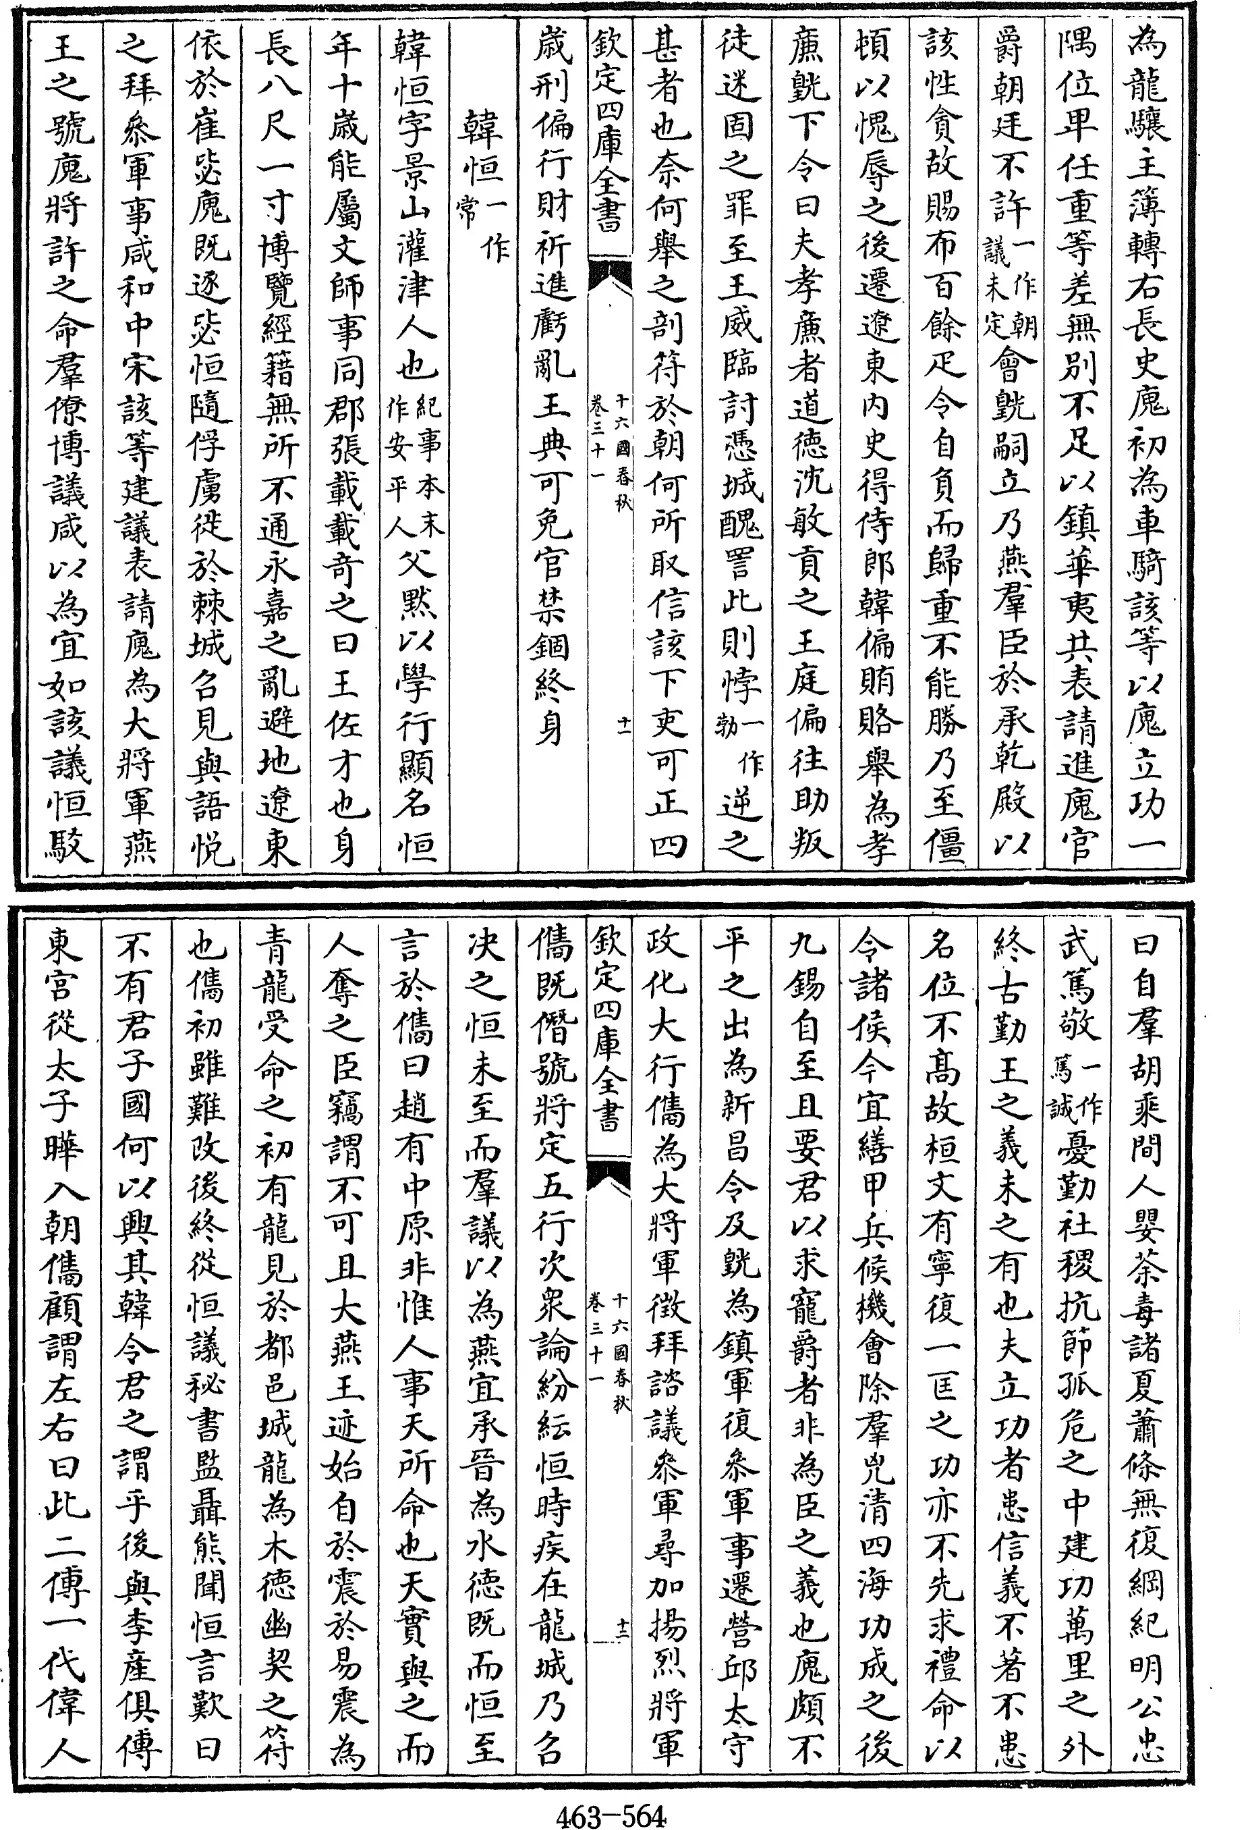 為龍驤主簿轉右長史廆初為車騎該等以廆立功一
隅位卑任重等差無別不足以鎮華夷共表請進廆官
爵朝廷不許一作朝議未定會皝嗣立乃燕羣臣於承乾殿以
該性貪故賜布百餘疋令自負而歸重不能勝乃至僵
頓以愧辱之後遷遼東內史得侍郎韓偏賄賂舉為孝
廉皝下令曰夫孝廉者道德沈敏貢之王庭偏往助叛
徒迷固之罪至王威臨討憑城醜詈此則悖一作勃逆之
甚者也奈何舉之剖符於朝何所取信該下吏可正四
欽定四庫全書
十六國春秋
卷三十一
十一
歲刑偏行財祈進虧亂王典可免官禁錮終身
韓恒一作常
韓恒字景山灌津人也紀事本末作安平人父默以學行顯名恒
年十歲能屬文師事同郡張載載奇之曰王佐才也身
長八尺一寸博覽經籍無所不通永嘉之亂避地遼東
依於崔毖廆既逐毖恒隨俘虜徙於棘城召見與語悅
之拜叅軍事咸和中宋該等建議表請廆為大將軍燕
王之號廆將許之命羣僚博議咸以為宜如該議恒駮
曰自羣胡乘間人嬰荼毒諸夏蕭條無復綱紀明公忠
武篤敬一作篤誠憂勤社稷抗節孤危之中建功萬里之外
終古勤王之義未之有也夫立功者患信義不著不患
名位不髙故桓文有寧復一匡之功亦不先求禮命以
令諸侯今宜繕甲兵候機會除羣兇清四海功成之後
九錫自至且要君以求寵爵者非為臣之義也廆頗不
平之出為新昌令及皝為鎮軍復叅軍事遷營邱太守
政化大行儁為大將軍徵拜諮議叅軍尋加揚烈將軍
欽定四庫全書
十六國春秋
卷三十一
十二
儁既僭號將定五行次衆論紛紜恒時疾在龍城乃召
决之恒未至而羣議以為燕宜承晉為水德既而恒至
言於儁曰趙有中原非惟人事天所命也天實與之而
人奪之臣竊謂不可且大燕王迹始自於震於易震為
青龍受命之初有龍見於都邑城龍為木德幽契之符
也儁初雖難改後終從恒議秘書監聶熊聞恒言歎曰
不有君子國何以興其韓令君之謂乎後與李產俱傅
東宮從太子曄入朝儁顧謂左右曰此二傅一代偉人
463-564